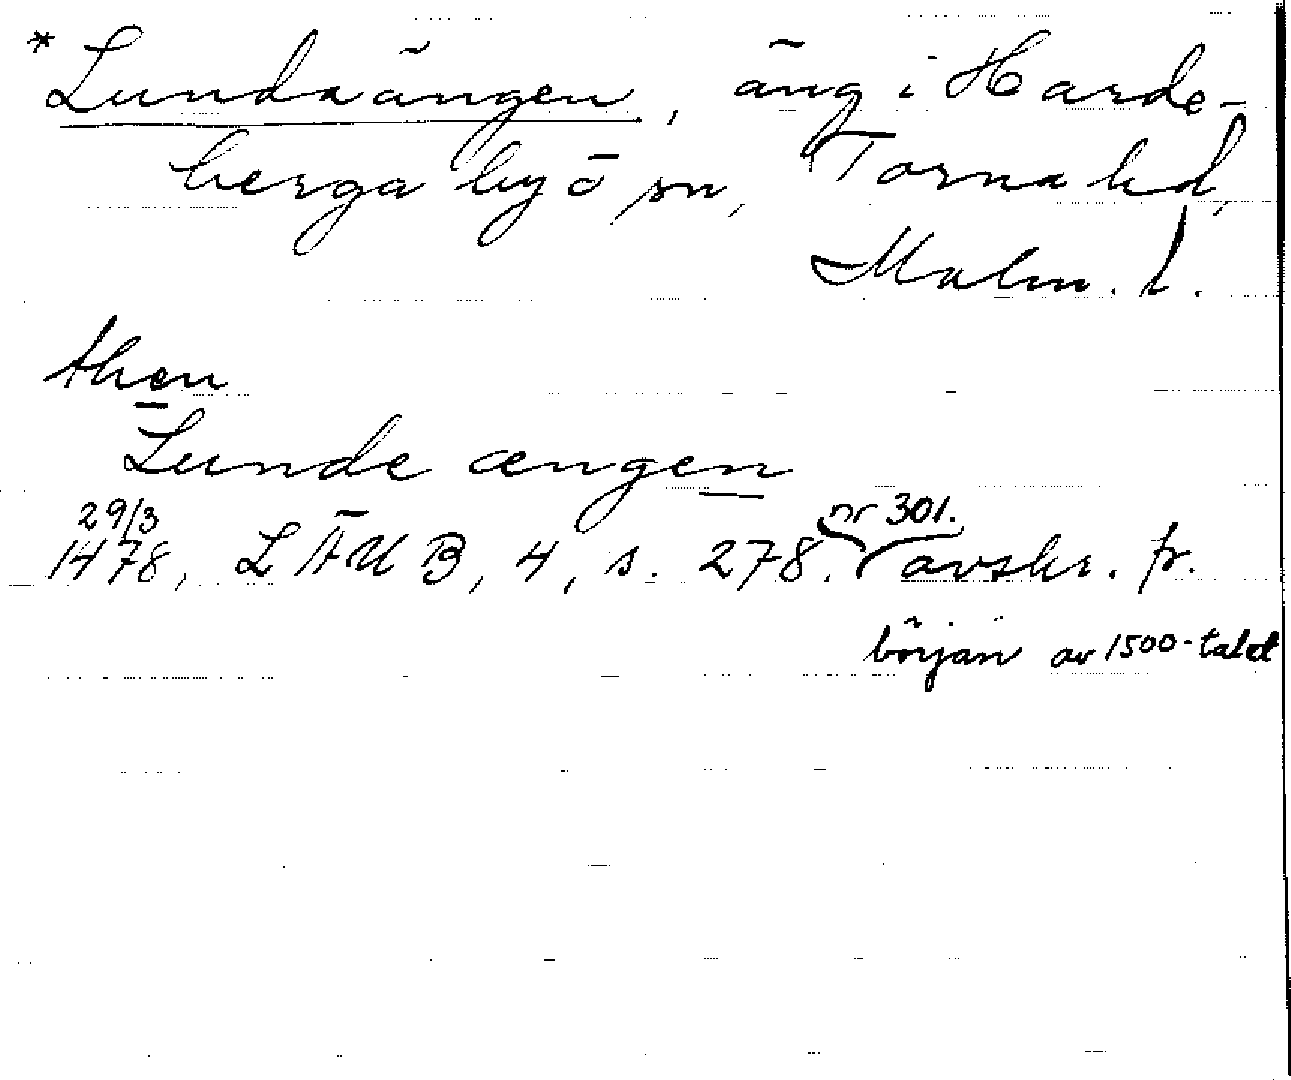 *Lundaängen, äng i Harde-
berga by o sn, Torna hd,
Malm. l.
then
Lunde ængen
29/3
1478, LÄUB, 4, s. 278. nr 301. (avskr. fr.
början av 1500-talet